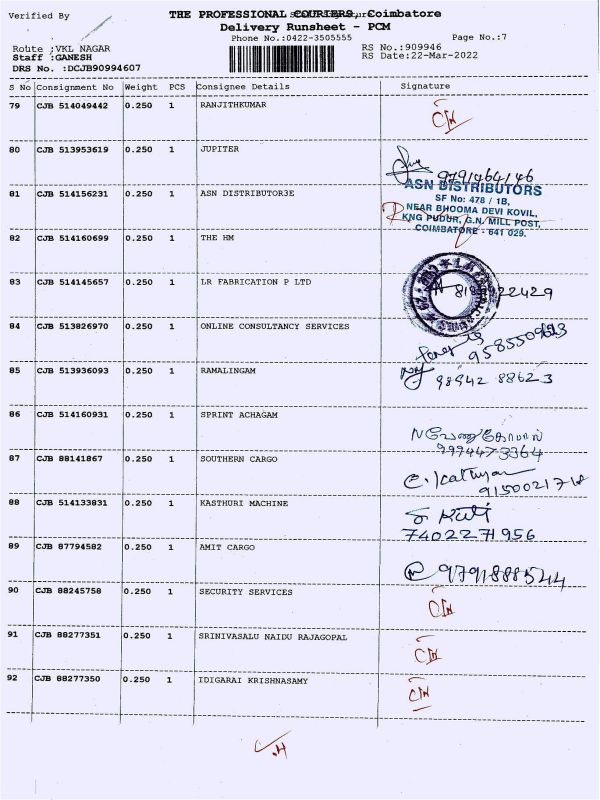 Verified By
THE PROFESSIONAL COURIERS, Coimbatore
Delivery Runsheet - PCM
Phone No.:0422-3505555 Page No.:7
Route :VKL NAGAR RS No.:909946
Staff :GANESH RS Date:22-Mar-2022
DRS No. :DCJB90994607
S No Consignment No Weight PCS Consignee Details Signature
79 CJB 514049442 0.250 1 RANJITHKUMAR
80 CJB 513953619 0.250 1 JUPITER
9791464146
81 CJB 514156231 0.250 1 ASN DISTRIBUTOR3E
ASN DISTRIBUTORS
SF No: 478 / 1B,
NEAR BHOOMA DEVI KOVIL,
KNG PUDUR, G.N. MILL POST,
COIMBATORE - 641 029.
82 CJB 514160699 0.250 1 THE HM
83 CJB 514145657 0.250 1 LR FABRICATION P LTD
84 CJB 513826970 0.250 1 ONLINE CONSULTANCY SERVICES
85 CJB 513936093 0.250 1 RAMALINGAM
98942 88623
86 CJB 514160931 0.250 1 SPRINT ACHAGAM
9994473364
87 CJB 88141867 0.250 1 SOUTHERN CARGO
9150021718
88 CJB 514133831 0.250 1 KASTHURI MACHINE
7402271956
89 CJB 87794582 0.250 1 AMIT CARGO
9791888544
90 CJB 88245758 0.250 1 SECURITY SERVICES
91 CJB 88277351 0.250 1 SRINIVASALU NAIDU RAJAGOPAL
92 CJB 88277350 0.250 1 IDIGARAI KRISHNASAMY